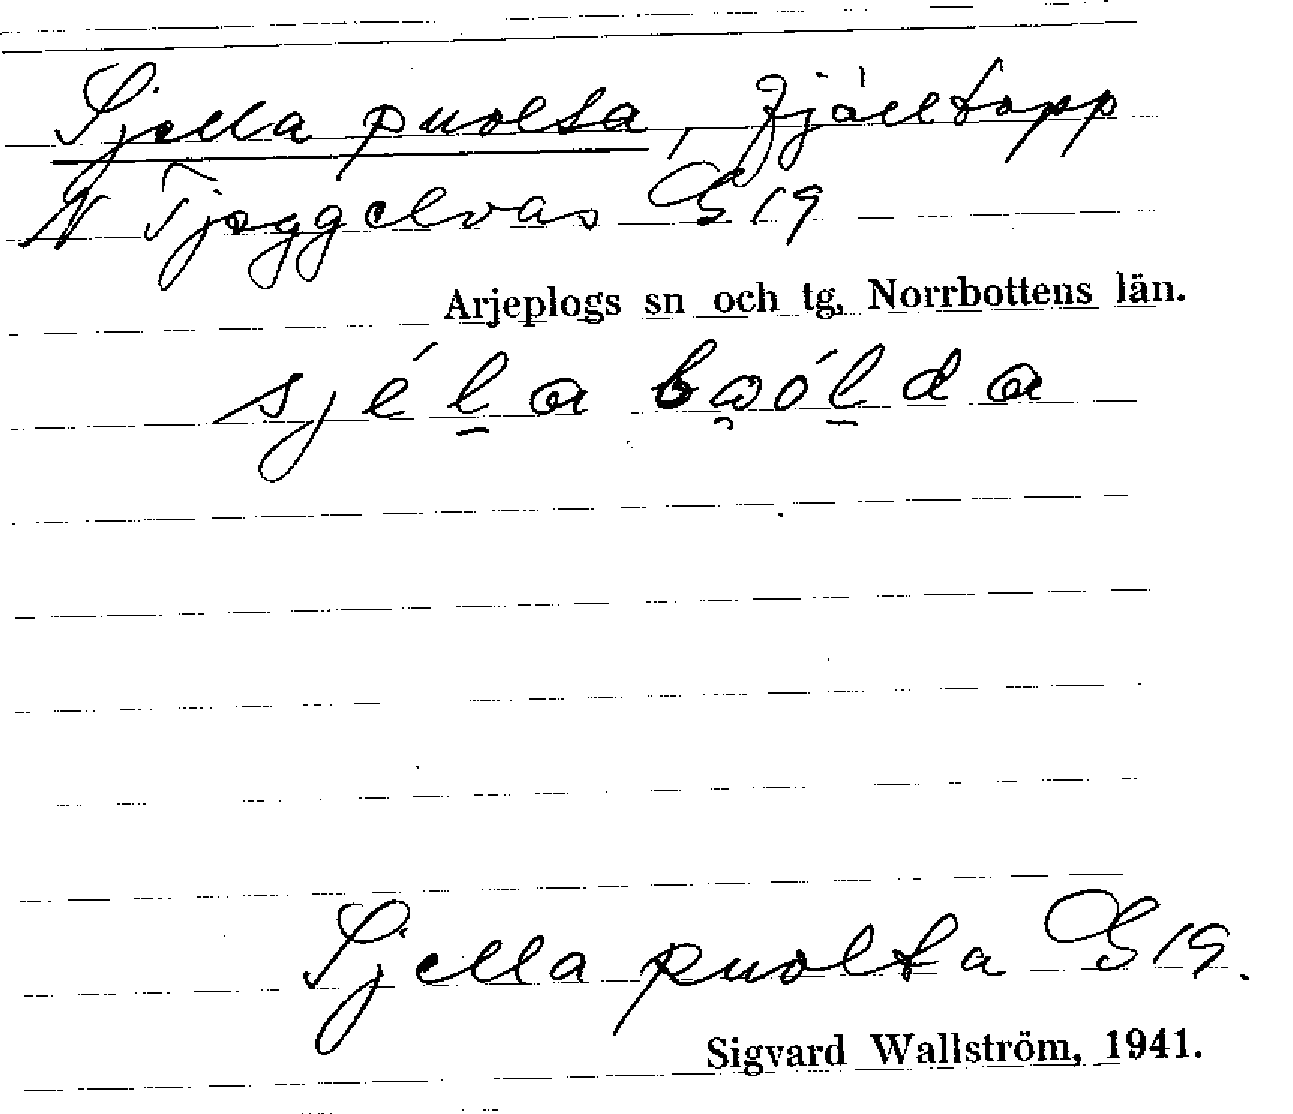 Sjella puolta, fjälltopp
N Tjeggelvas G 19
Arjeplogs sn och tg, Norrbottens län.
sjél̠a bω̭ól̠da
Sjella puolta G 19.
Sigvard Wallström, 1941.